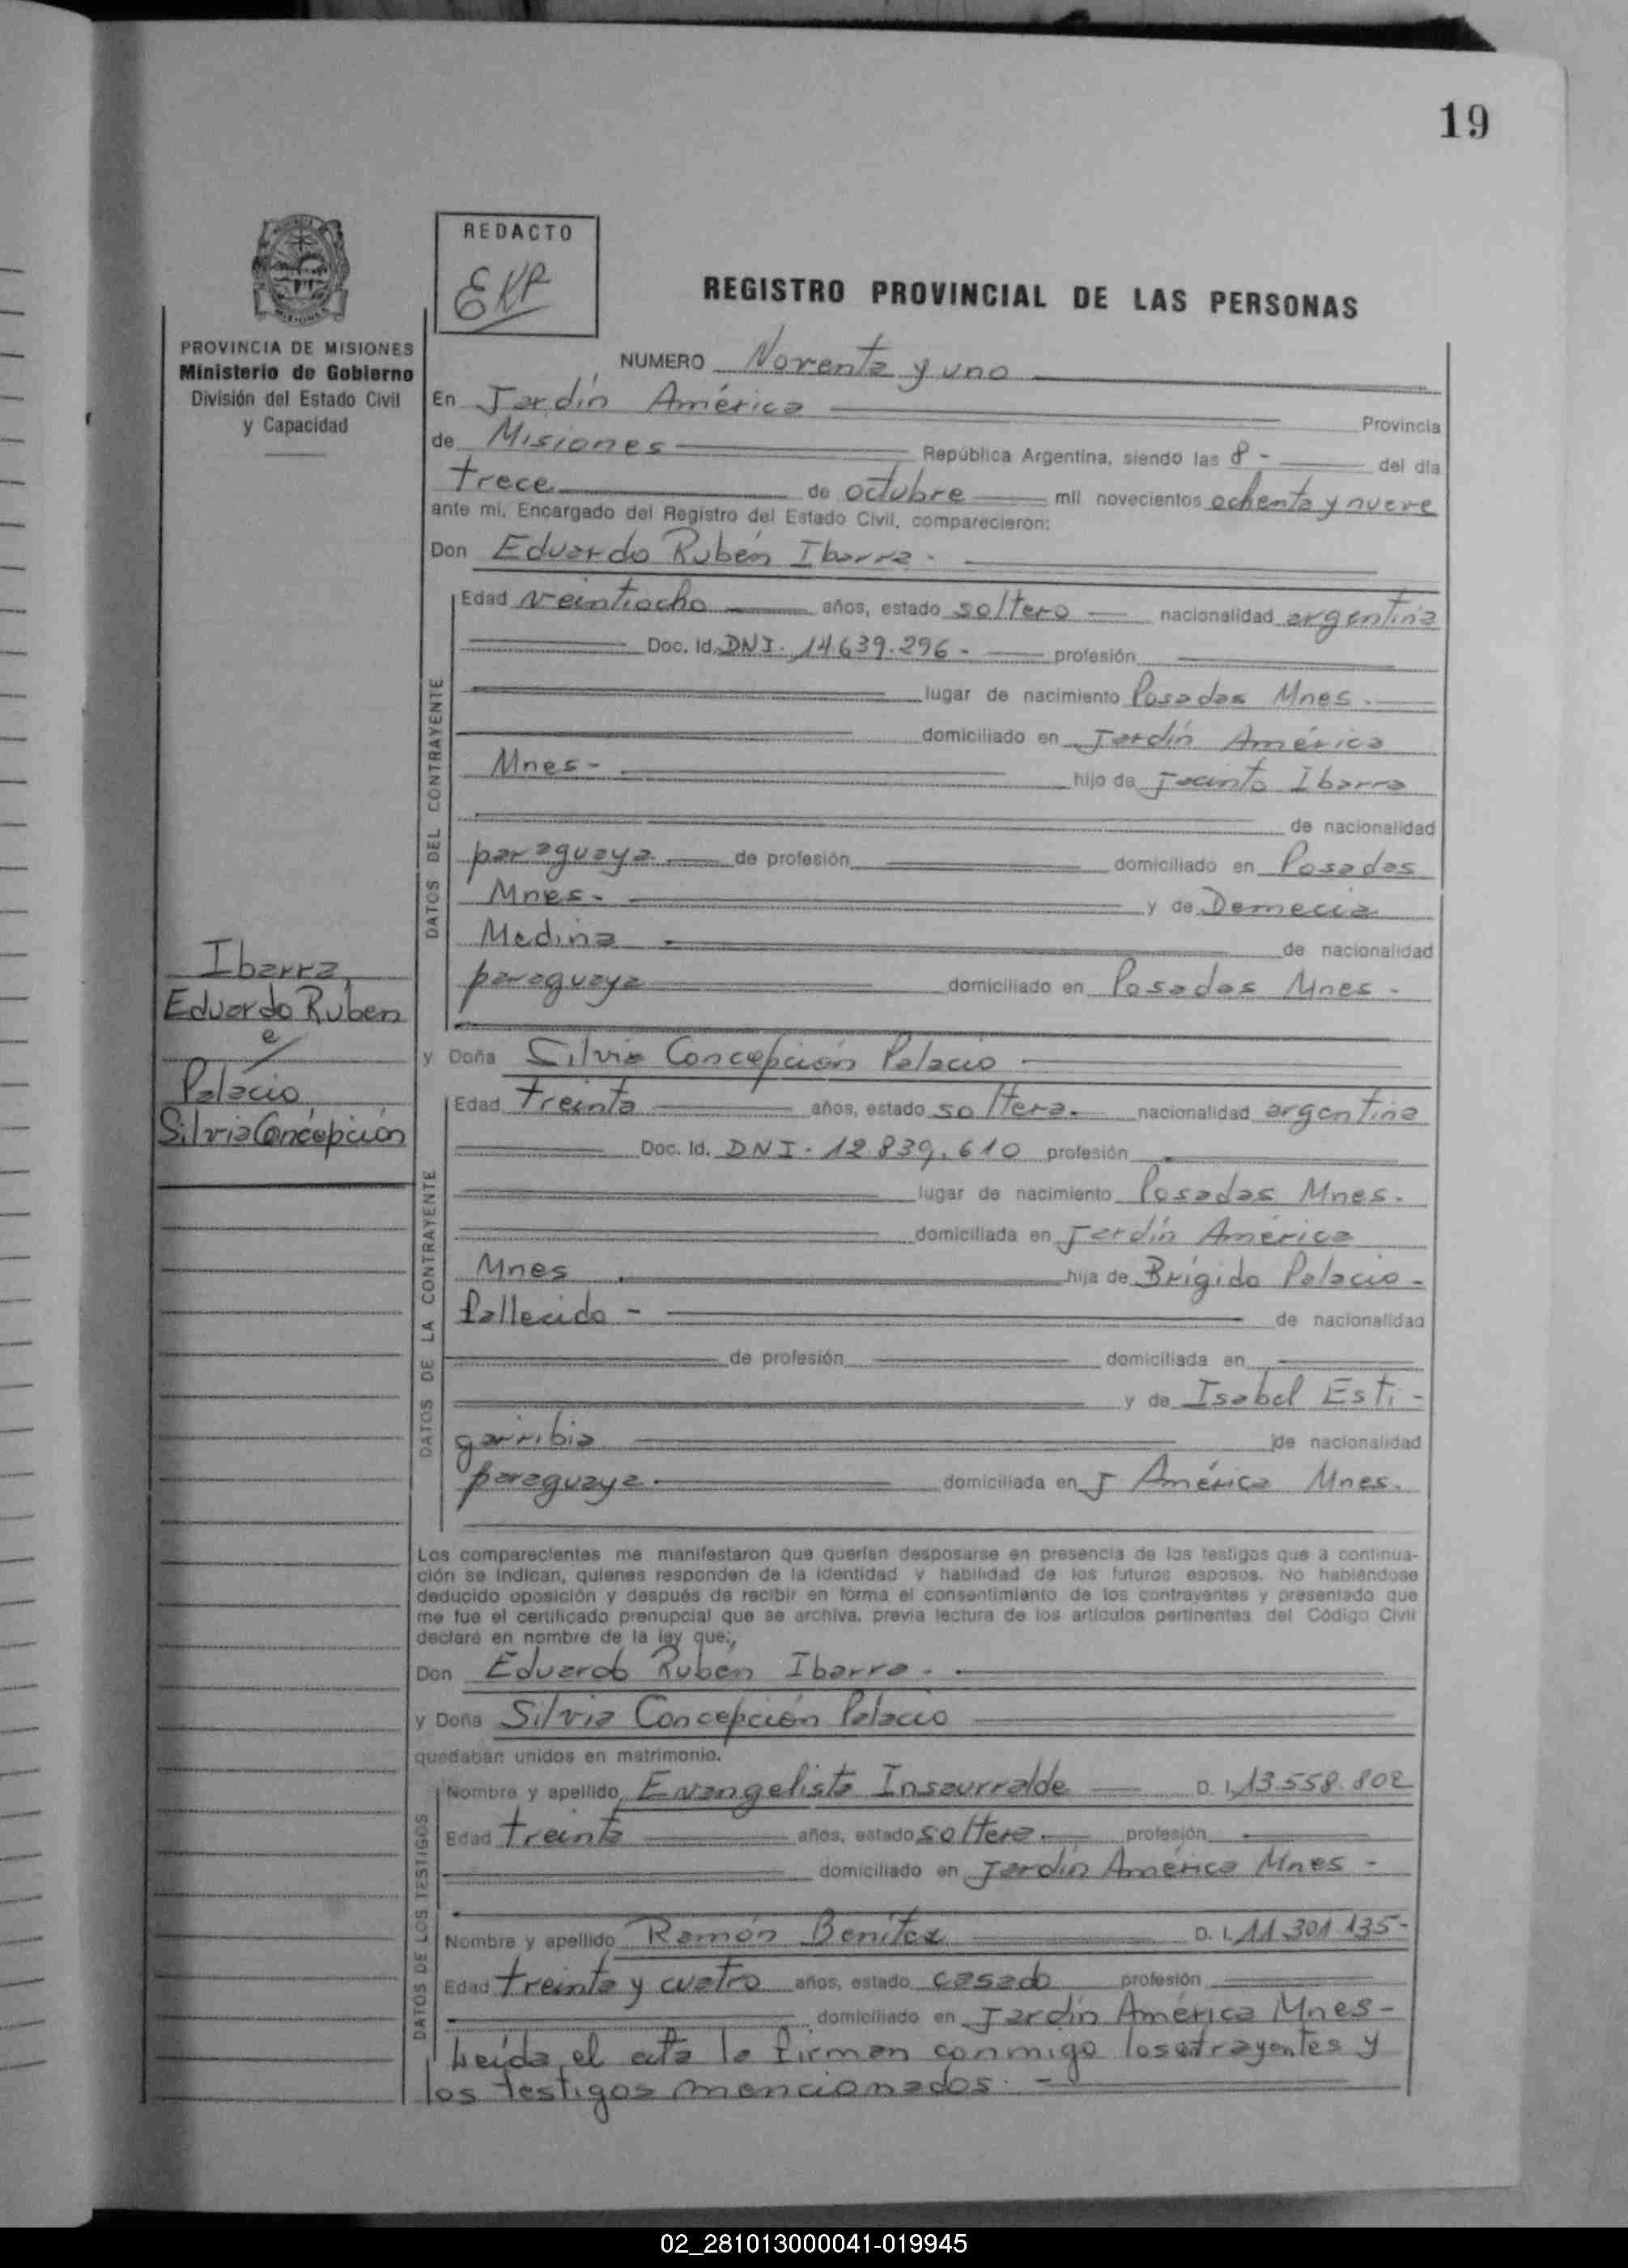 19
REDACTO
EKR
REGISTRO PROVINCIAL DE LAS PERSONAS
PROVINCIA DE MISIONES
Ministerio de Gobierno
División del Estado Civil
y Capacidad
NUMERO Noventa y uno
En Jardín América Provincia
de Misiones República Argentina, siendo las 8 - del día
trece de octubre mil novecientos ochenta y nueve
ante mi, Encargado del Registro del Estado Civil, comparecieron:
Don Eduardo Rubén Ibarra.
DATOS DEL CONTRAYENTE
Edad veintiocho años, estado soltero nacionalidad argentina
Doc. Id. DNI. 14.639.296 - profesión
lugar de nacimiento Posadas Mnes.
domiciliado en Jardín América
Mnes - hijo de Jacinto Ibarra
de nacionalidad
paraguaya de profesión domiciliado en Posadas
Mnes - y de Demecia
Medina de nacionalidad
paraguaya domiciliado en Posadas Mnes -
Ibarra,
Eduardo Ruben
e/
Palacio
Silvia Concepción
y Doña Silvia Concepción Palacio
DATOS DE LA CONTRAYENTE
Edad treinta años, estado soltera. nacionalidad argentina
Doc. Id. DNI. 12.839.610 profesión
lugar de nacimiento Posadas Mnes.
domiciliada en Jardín América
Mnes hija de Brígido Palacio -
fallecido - de nacionalidad
de profesión domiciliada en
y de Isabel Esti -
garribia de nacionalidad
paraguaya. domiciliada en J América Mnes.
Los comparecientes me manifestaron que querían desposarse en presencia de los testigos que a continua-
ción se indican, quienes responden de la identidad y habilidad de los futuros esposos. No habiéndose
deducido oposición y después de recibir en forma el consentimiento de los contrayentes y presentado que
me fue el certificado prenupcial que se archiva, previa lectura de los artículos pertinentes del Código Civil
declaré en nombre de la ley que:
Don Eduardo Rubén Ibarra.
y Doña Silvia Concepción Palacio
quedaban unidos en matrimonio.
DATOS DE LOS TESTIGOS
Nombre y apellido Evangelista Insaurralde D. I. 13.558.802
Edad treinta años, estado soltera profesión
domiciliado en Jardín América Mnes -
Nombre y apellido Ramón Benítez D. I. 11.301.135 -
Edad treinta y cuatro años, estado casado profesión
domiciliado en Jardín América Mnes -
Leída el acta la firman conmigo los
los testigos mencionados. -
02_281013000041-019945